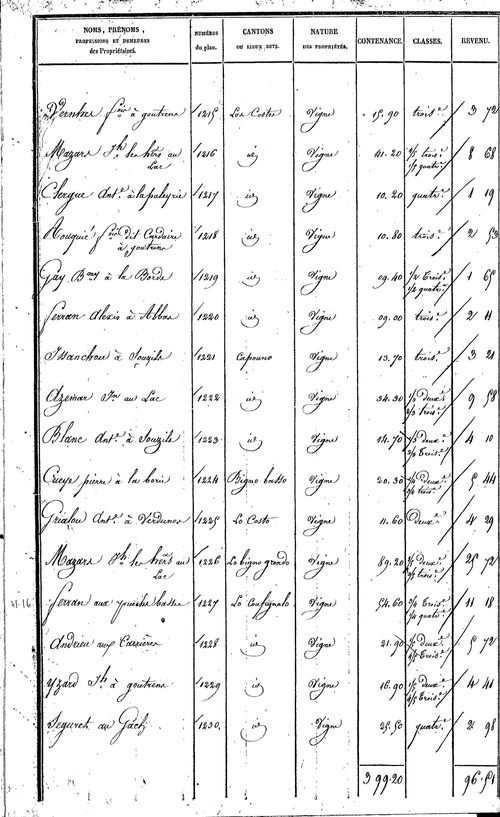 NOMS, PRÉNOMS, PROFESSIONS ET DEMEURES des Propriétaires. NUMÉROS du plan. CANTONS OU LIEUX DITS. NATURE DES PROPRIÉTÉS. CONTENANCE. CLASSES. REVENU.
à goutrens 1215 Los Costes Vigne 15.90 trois.e 3 72
Mazars Jh les hers au Lac 1216 id Vigne 41.20 trois.e quatr.e 8 68
Clergue Ant.e 1217 id Vigne 10.20 quatr.e 1 19
Rouquié dit à goutrens 1218 id Vigne 10.80 trois.e 2 53
Gay B.my à la Borde 1219 id Vigne 09.40 1/2 trois.e 1/2 quatr.e 1 65
Ferran Alexis à Abbas 1220 id Vigne 09.00 trois.e 2 11
Issanchou à Souzils 1221 Capouno Vigne 13.70 trois.e 3 21
Azemar au Lac 1222 id Vigne 34.30 1/3 deux.e 2/3 trois.e 9 58
Blanc Ant.e à Souzils 1223 id Vigne 14.70 1/3 deux.e 2/3 trois.e 4 10
pierre à la borie 1224 Bigno basso Vigne 20.30 deux.e trois.e 5 44
Grialou Ant.e à Verdunes 1225 Lo Costo Vigne 11.60 Deux.e 4 29
Mazars Jh les hers au Lac 1226 Lo bigno grando Vigne 89.20 deux.e trois.e 25 72
41-16 Ferran aux basses 1227 Vigne 54.60 3/4 trois.e 1/4 quatr.e 11 18
Andrieu aux Carrières 1228 id Vigne 21.90 1/5 deux.e 4/5 trois.e 5 72
Yzard Jh à goutrens 1229 id Vigne 16.90 1/5 deux.e 4/5 trois.e 4 41
Seguret au 1230 id Vigne 25.50 quatr.e 2 98
3 99.20 96.51